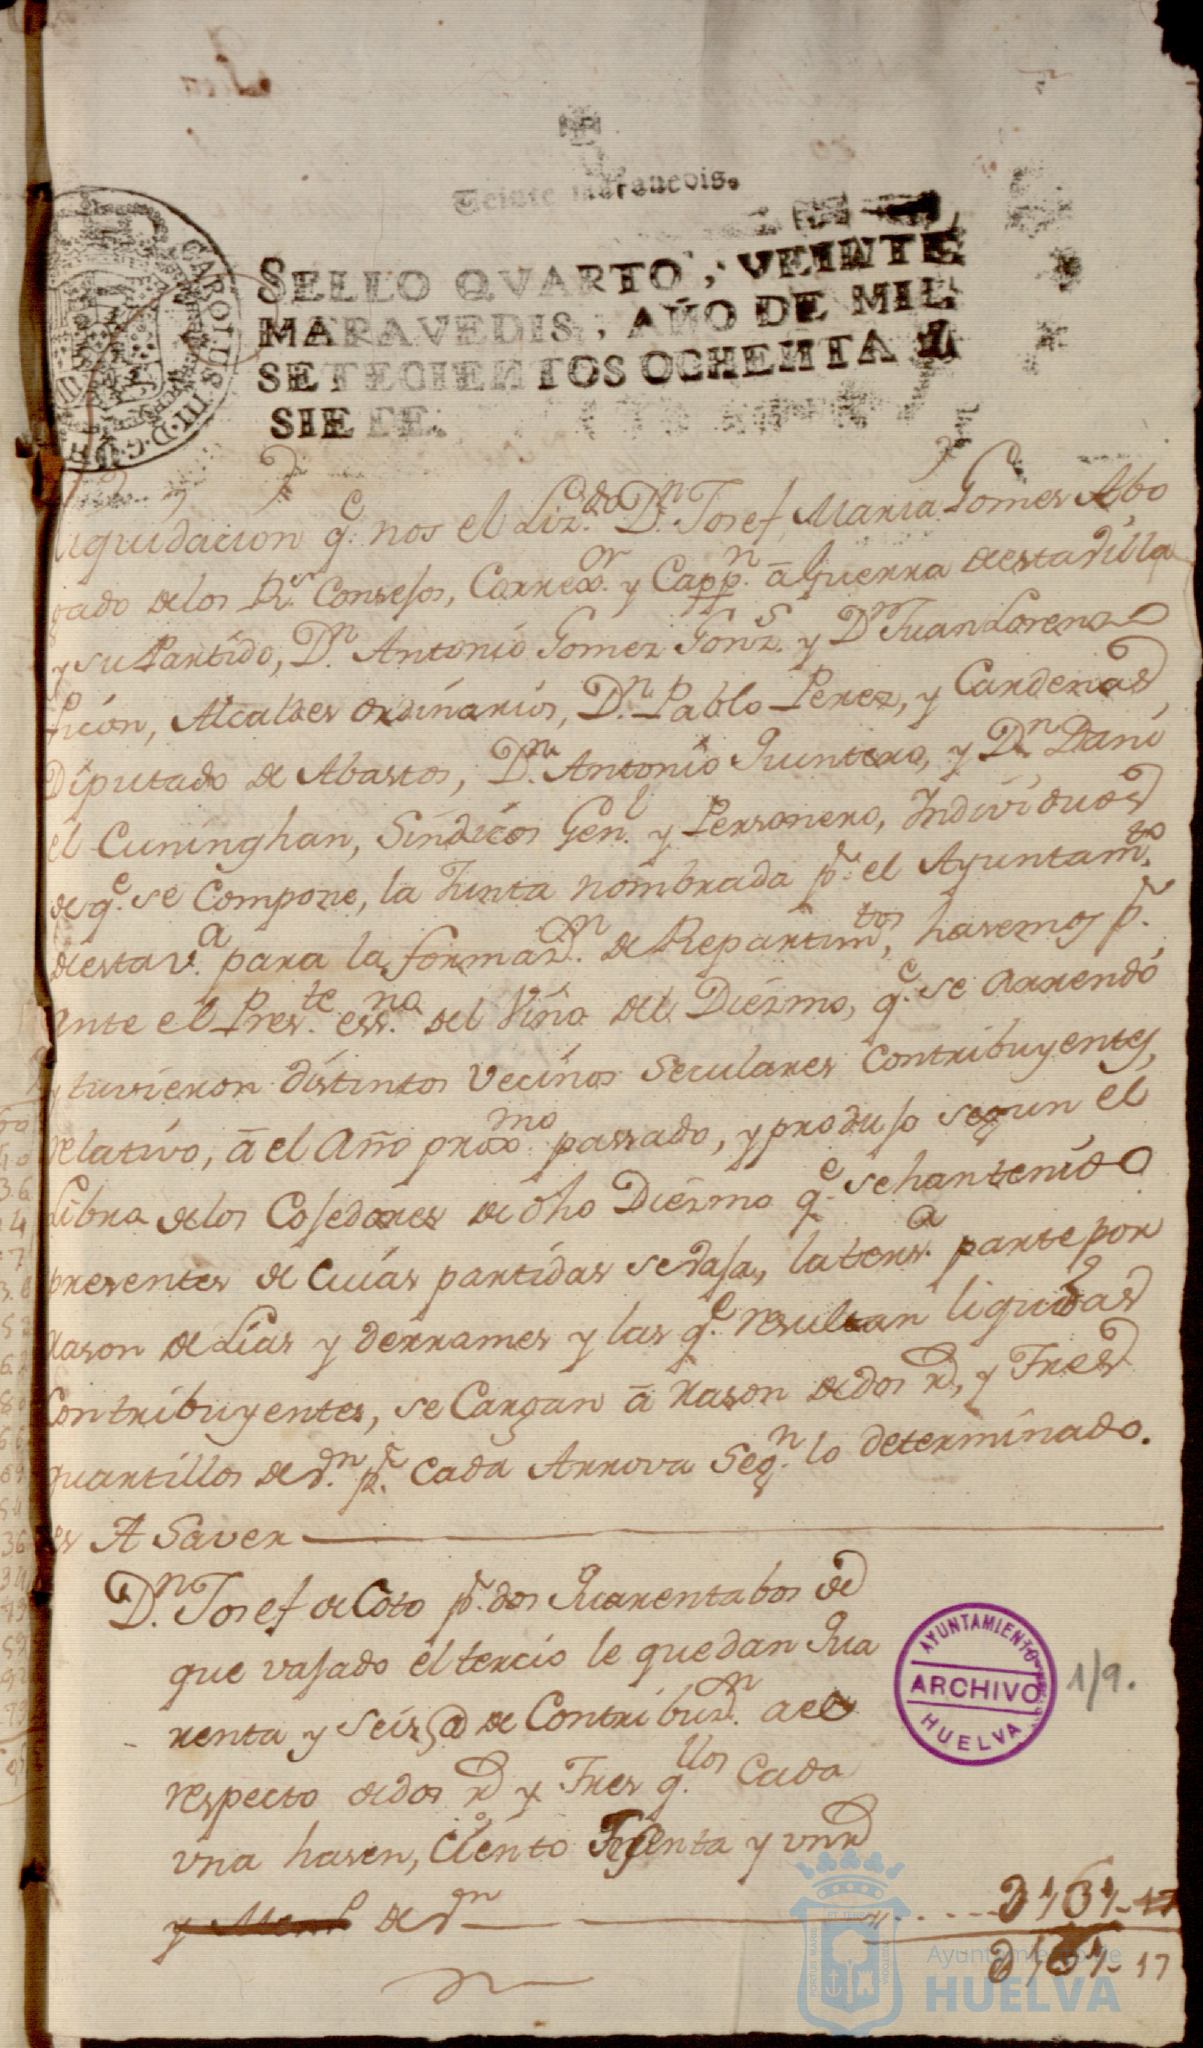 Veinte maravedis.
SELLO QVARTO, VEINTE
MARAVEDIS, AÑO DE MIL
SETECIENTOS OCHENTA Y
SIETE.
CAROLUS III D G
Liquidacion q.e nos el Liz.do D.n Josef Maria Gomez Abo
gado de los R.s Consejos, Correx.or y Capp.n â Guerra de esta Villa
y su Partido, D.n Antonio Gomez Gonz.s y D.n Juan Lorenzo
Picon, Alcaldes ordinarios, D.n Pablo Perez, y Cardenas,
Diputado de Abastos, D.n Antonio Quintero, y D.n Dani
el Cuninghan, Sindicos Gen.l y Personero, Individuos
de q.e se Compone, la Junta nombrada p.r el Ayuntam.to
de esta v.a para la formaz.n de Repartim.tos, hasemos p.r
ante el Pres.te ess.no del Vino del Diezmo, q.e se arrendó
y tuvieron distintos Vecinos Seculares Contribuyentes,
relativo, â el Año prox.mo passado, y produjo segun el
Libro de los Cojedores de dho Diezmo q.e se han tenido
presentes de cuias partidas se vaja, la ters.a parte por
rason de Lias y derrames y las q.e resultan liquidas
Contribuyentes, se Cargan â rason de dos r.s, y Tres
quartillos de v.n p.r cada Arrova Seg.n lo determinado.
es A Saver
D.n Josef de Coto p.r dos Quarentabos de
que vajado el tercio le quedan Qua
renta y seis @ de Contribuz.n a el
respecto de dos r.s y Tres q.llos Cada
vna hasen, Ciento Treinta y vn r.s
de v.n
AYUNTAMIENTO
ARCHIVO
HUELVA
1/9.
Ayuntamiento de
HUELVA